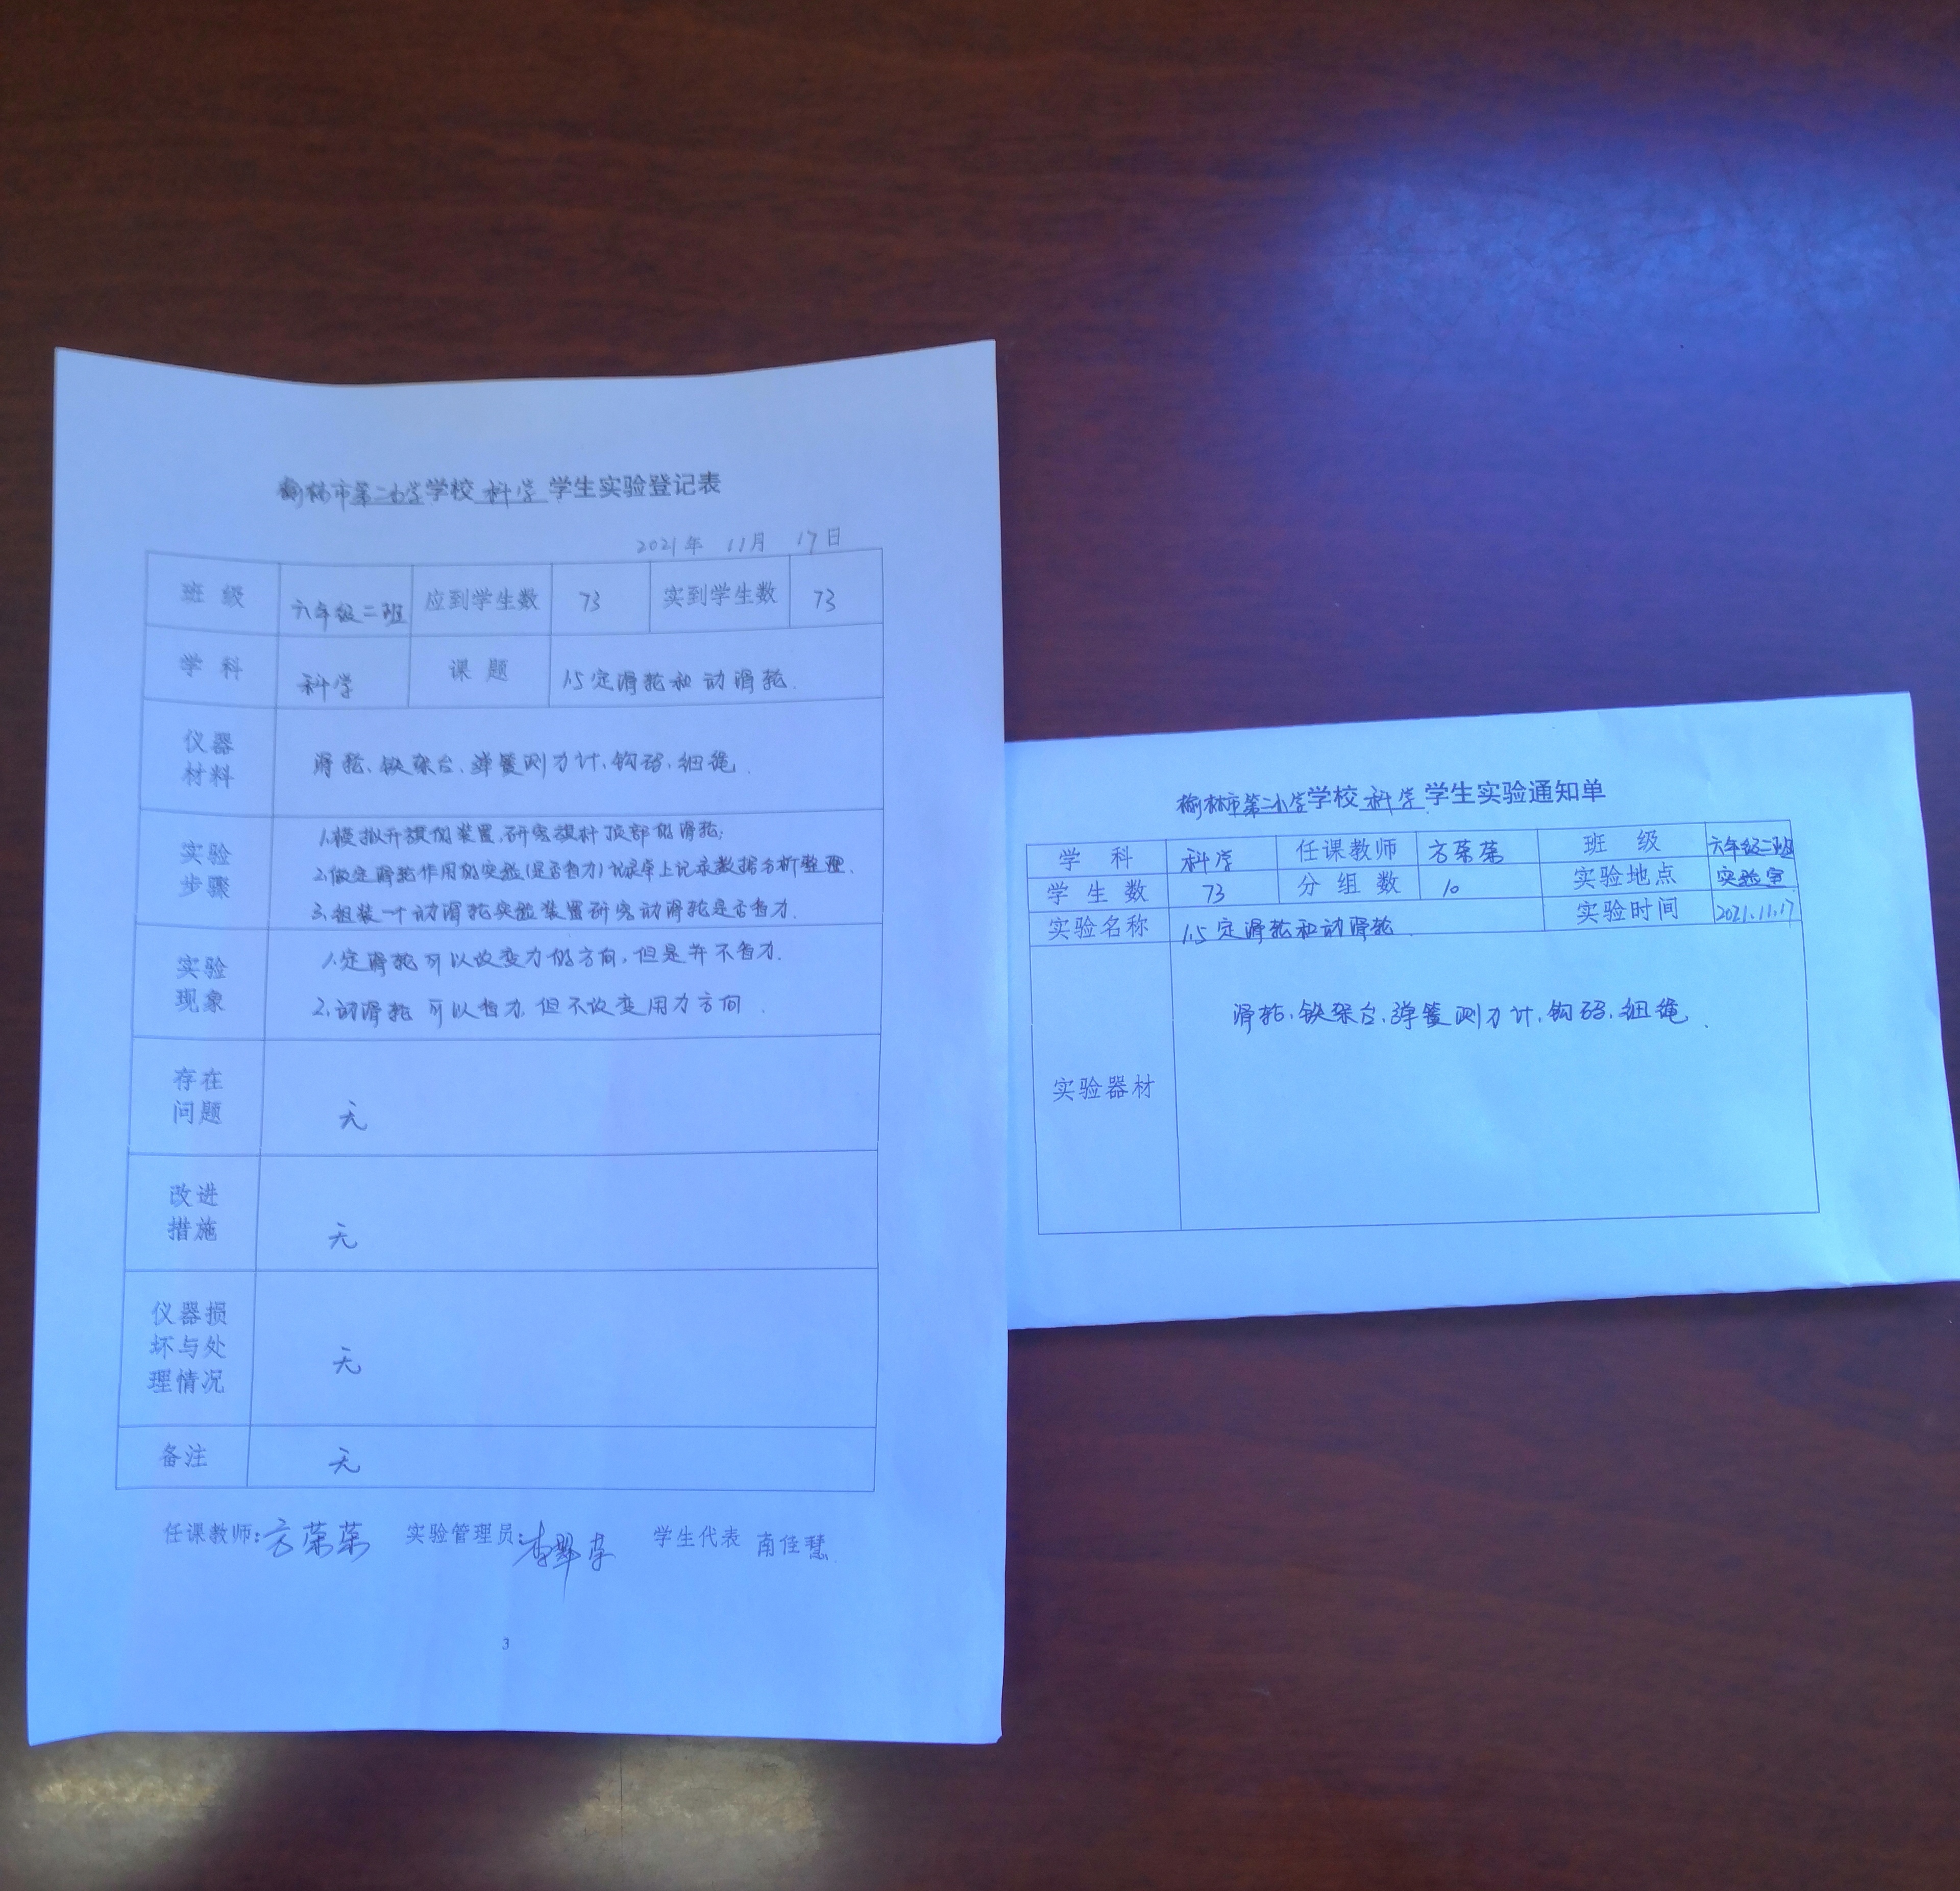 榆林市第二小学学校 科学 学生实验登记表
2021年 11月 17日
班级 六年级二班 应到学生数 73 实到学生数 73
学科 科学 课题 1.5定滑轮和动滑轮.
仪器
材料
滑轮、铁架台、弹簧测力计、钩码、细绳.
实验
步骤
1.模拟升旗的装置,研究旗杆顶部的滑轮;
2.做定滑轮作用的实验(是否省力)记录单上记录数据分析整理.
3.组装一个动滑轮实验装置研究动滑轮是否省力.
实验
现象
1.定滑轮可以改变力的方向,但是并不省力.
2.动滑轮可以省力,但不改变用力方向.
存在
问题
无
改进
措施
无
仪器损
坏与处
理情况
无
备注 无
任课教师:方荣荣 实验管理员: 学生代表 南佳慧
3
榆林市第二小学学校 科学 学生实验通知单
学科 科学 任课教师 方荣荣 班级 六年级二班
学生数 73 分组数 10 实验地点 实验室
实验名称 1.5定滑轮和动滑轮. 实验时间 2021.11.17
实验器材
滑轮、铁架台、弹簧测力计、钩码、细绳.